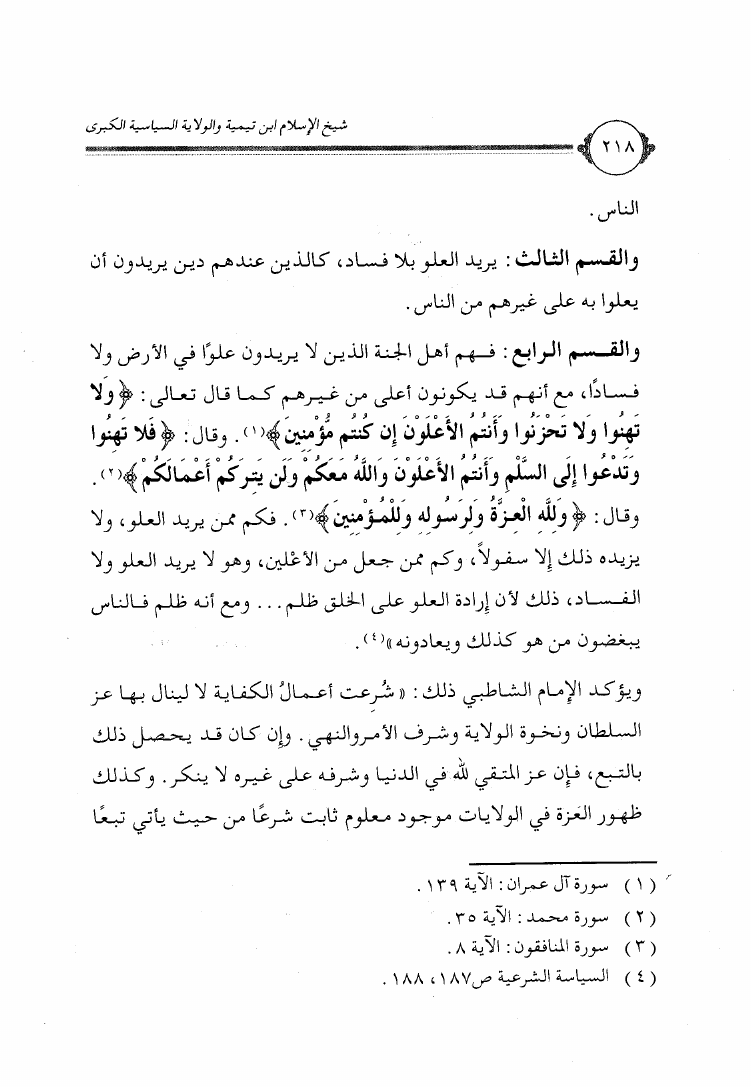 شيخ الإسلام ابن تيمية والولاية السياسية الكبرى
٢١٨
الناس.
والقسم الثالث: يريد العلو بلا فساد، كالذين عندهم دين يريدون أن
يعلوا به على غيرهم من الناس.
والقسم الرابع: فهم أهل الجنة الذين لا يريدون علوًا في الأرض ولا
فسادًا، مع أنهم قد يكونون أعلى من غيرهم كما قال تعالى: ﴿وَلَا
تَهِنُوا وَلَا تَحْزَنُوا وَأَنتُمُ الأَعْلَوْنَ إِن كُنتُم مُّؤْمِنِينَ﴾(١). وقال: ﴿فَلَا تَهِنُوا
وَتَدْعُوا إِلَى السَّلْمِ وَأَنتُمُ الأَعْلَوْنَ وَاللَّهُ مَعَكُمْ وَلَن يَتِرَكُمْ أَعْمَالَكُمْ﴾(٢).
وقال: ﴿وَلِلَّهِ الْعِزَّةُ وَلِرَسُولِهِ وَلِلْمُؤْمِنِينَ﴾(٣). فكم ممن يريد العلو، ولا
يزيده ذلك إلا سفولاً، وكم ممن جعل من الأعْلين، وهو لا يريد العلو ولا
الفساد، ذلك لأن إرادة العلو على الخلق ظلم... ومع أنه ظلم فالناس
يبغضون من هو كذلك ويعادونه»(٤).
ويؤكد الإمام الشاطبي ذلك: «شُرعت أعمالُ الكفاية لا لينال بها عز
السلطان ونخوة الولاية وشرف الأمر والنهي. وإن كان قد يحصل ذلك
بالتبع، فإن عز المتقي لله في الدنيا وشرفه على غيره لا ينكر. وكذلك
ظهور العزة في الولايات موجود معلوم ثابت شرعًا من حيث يأتي تبعًا
(١) سورة آل عمران: الآية ١٣٩.
(٢) سورة محمد: الآية ٣٥.
(٣) سورة المنافقون: الآية ٨.
(٤) السياسة الشرعية ص١٨٧، ١٨٨.